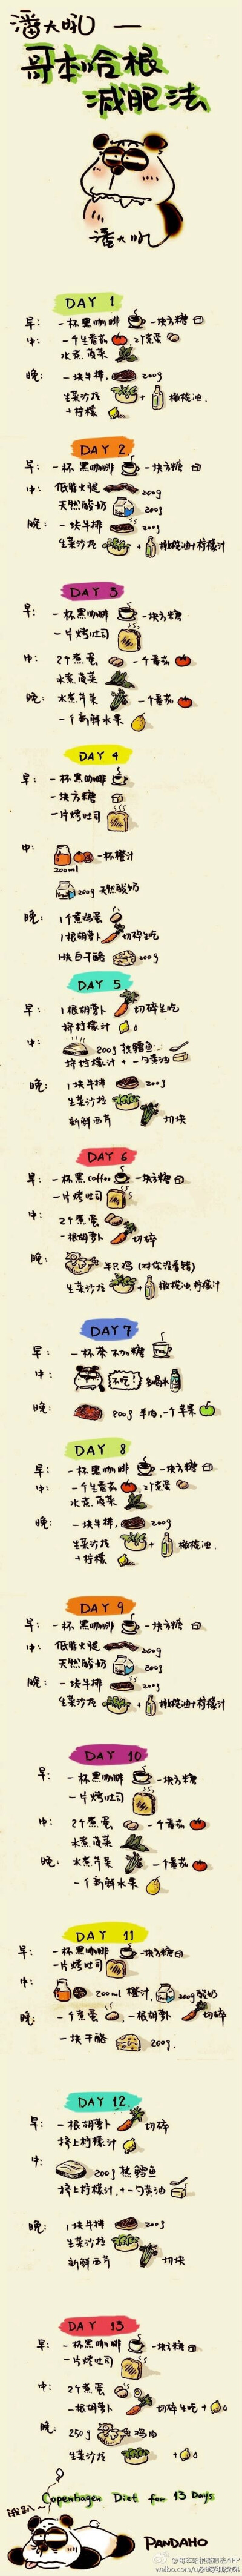 潘大吼 —
哥本哈根
减肥法
潘大吼
DAY 1
早: 一杯黑咖啡 一块方糖
中: 一个生番茄, 2个煮蛋
水煮菠菜
晚: 一块牛排, 200g
生菜沙拉 + 橄榄油,
+柠檬
DAY 2
早: 一杯黑咖啡 一块方糖
中: 低脂火腿 200g
天然酸奶 200g
晚: 一块牛排 200g
生菜沙拉 + 橄榄油+柠檬汁
DAY 3
早: 一杯黑咖啡 一块方糖
一片烤吐司
中: 2个煮蛋 一个番茄
水煮菠菜
晚: 水煮芹菜 一个番茄
一个新鲜水果
DAY 4
早: 一杯黑咖啡
一块方糖
一片烤吐司
中: 一杯橙汁
200ml
200g 天然酸奶
晚: 1个煮鸡蛋
1根胡萝卜 切碎生吃
1块白干酪 200g
DAY 5
早: 1根胡萝卜 切碎生吃
挤柠檬汁
中: 200g 熟鳕鱼
挤柠檬汁 + 一勺黄油
晚: 1块牛排 200g
生菜沙拉
新鲜西芹 切块
DAY 6
早: 一杯黑coffee 一块方糖
一片烤吐司
中: 2个煮蛋
一根胡萝卜 切碎
晚: 半只鸡 (对你没看错)
生菜沙拉 + 橄榄油,柠檬汁
DAY 7
早: 一杯茶 不加糖
中: 不吃!
晚: 200g 羊肉, 一个苹果
DAY 8
早: 一杯黑咖啡 一块方糖
中: 一个生番茄, 2个煮蛋
水煮菠菜
晚: 一块牛排, 200g
生菜沙拉 + 橄榄油,
+柠檬
DAY 9
早: 一杯黑咖啡 一块方糖
中: 低脂火腿 200g
天然酸奶 200g
晚: 一块牛排 200g
生菜沙拉 + 橄榄油+柠檬汁
DAY 10
早: 一杯黑咖啡 一块方糖
一片烤吐司
中: 2个煮蛋 一个番茄
水煮菠菜
晚: 水煮芹菜 一个番茄
一个新鲜水果
DAY 11
早: 一杯黑咖啡 一块方糖
一片烤吐司
中: 200ml 橙汁, 200g 酸奶
晚: 一个煮蛋, 一根胡萝卜 切碎
一块干酪 200g.
DAY 12
早: 一根胡萝卜 切碎
挤上柠檬汁
中: 200g 熟鳕鱼
挤上柠檬汁, + 一勺黄油
晚: 1块牛排 200g
生菜沙拉
新鲜西芹 切块
DAY 13
早: 一杯黑咖啡 一块方糖
一片烤吐司
中: 2个煮蛋
一根胡萝卜 切碎生吃 +
晚: 250g 鸡肉
生菜沙拉 +
Copenhagen Diet for 13 Days
饿趴~
PANDAHO
@哥本哈根减肥法APP